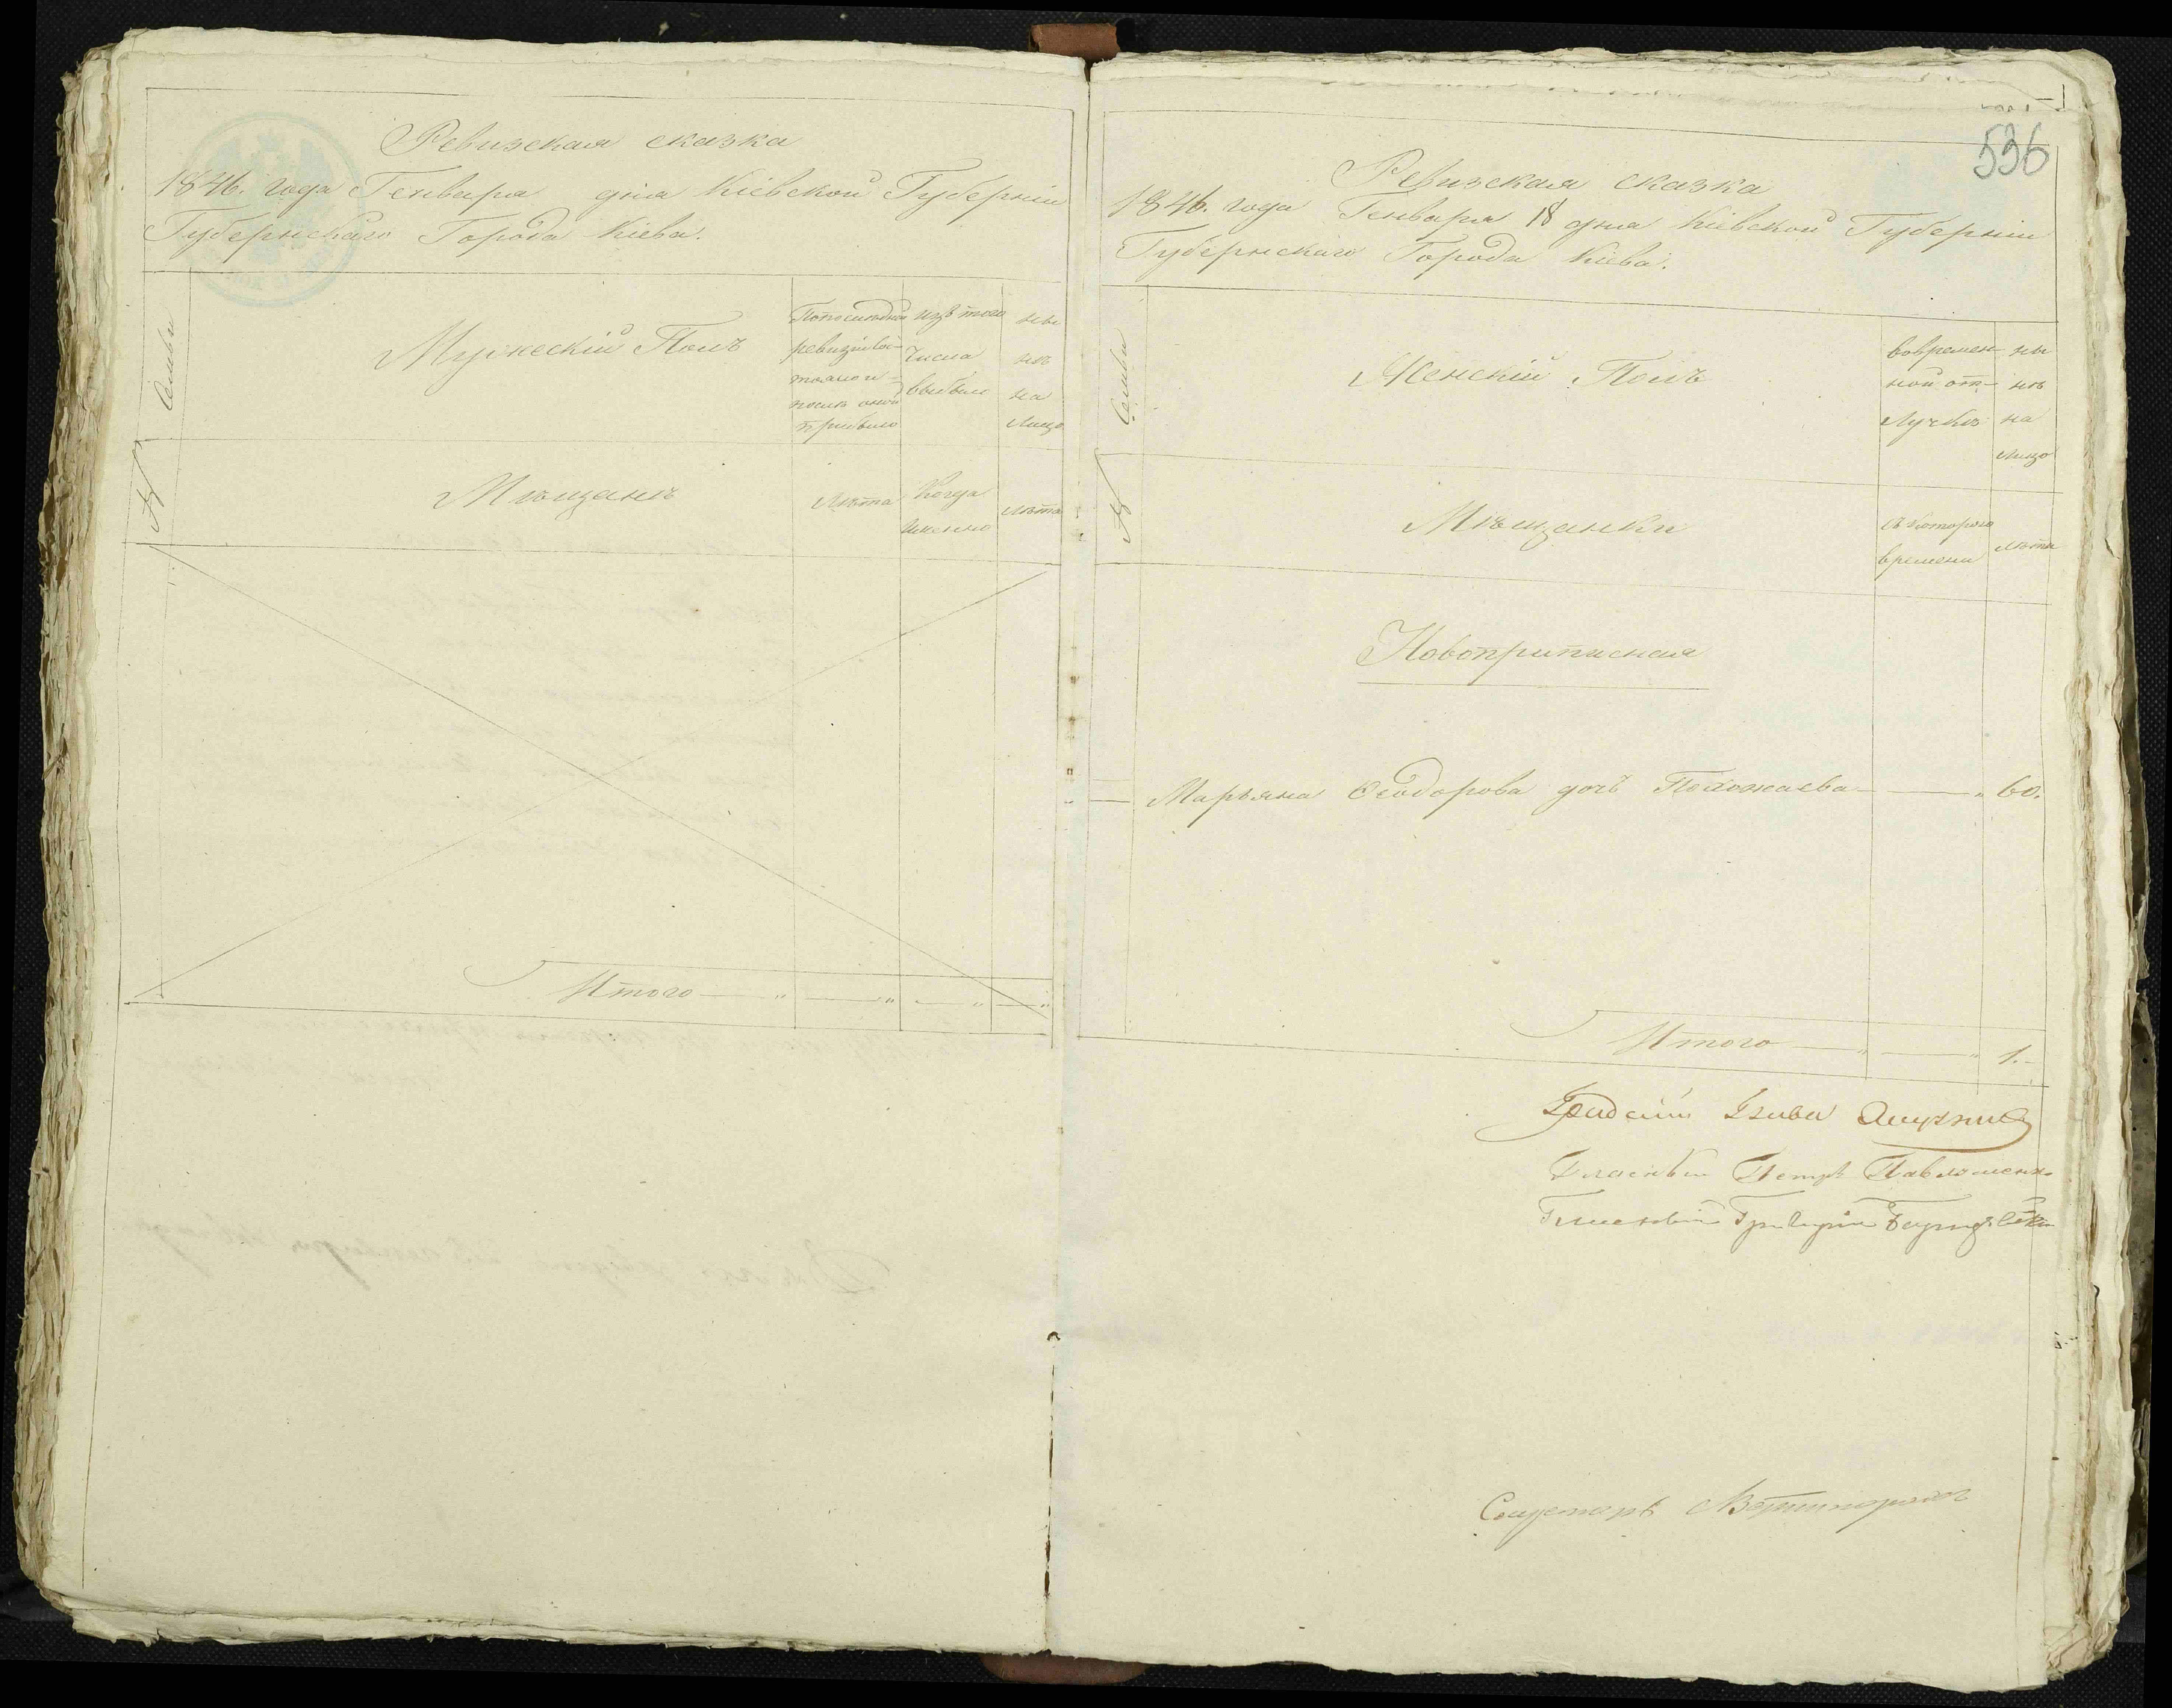 Ревизская сказка
1846. года Генваря дня Кіевской Губерніи
Губернскаго Города Кіева.
№ Семьи
Мужескій Полъ
По последней ревизіи состояло и после оной прибыло
Изъ того числа выбыло
Ныне на лицо
Мѣщанъ
Лѣта
Когда именно
Лѣта
Итого — " — " — " — "
536
Ревизская сказка
1846. года Генваря 18 дня Кіевской Губерніи
Губернскаго Города Кіева.
№ Семьи
Женскій Полъ
Во временной отлучкѣ
Ныне на лицо
Мѣщанки
Съ котораго времени
Лѣта
Новоприписная
— Марьяна Ѳеодорова дочь Похожаева — " 60.
Итого — " — " 1.
Гласный Петръ
Гласный Григорій
Секретарь